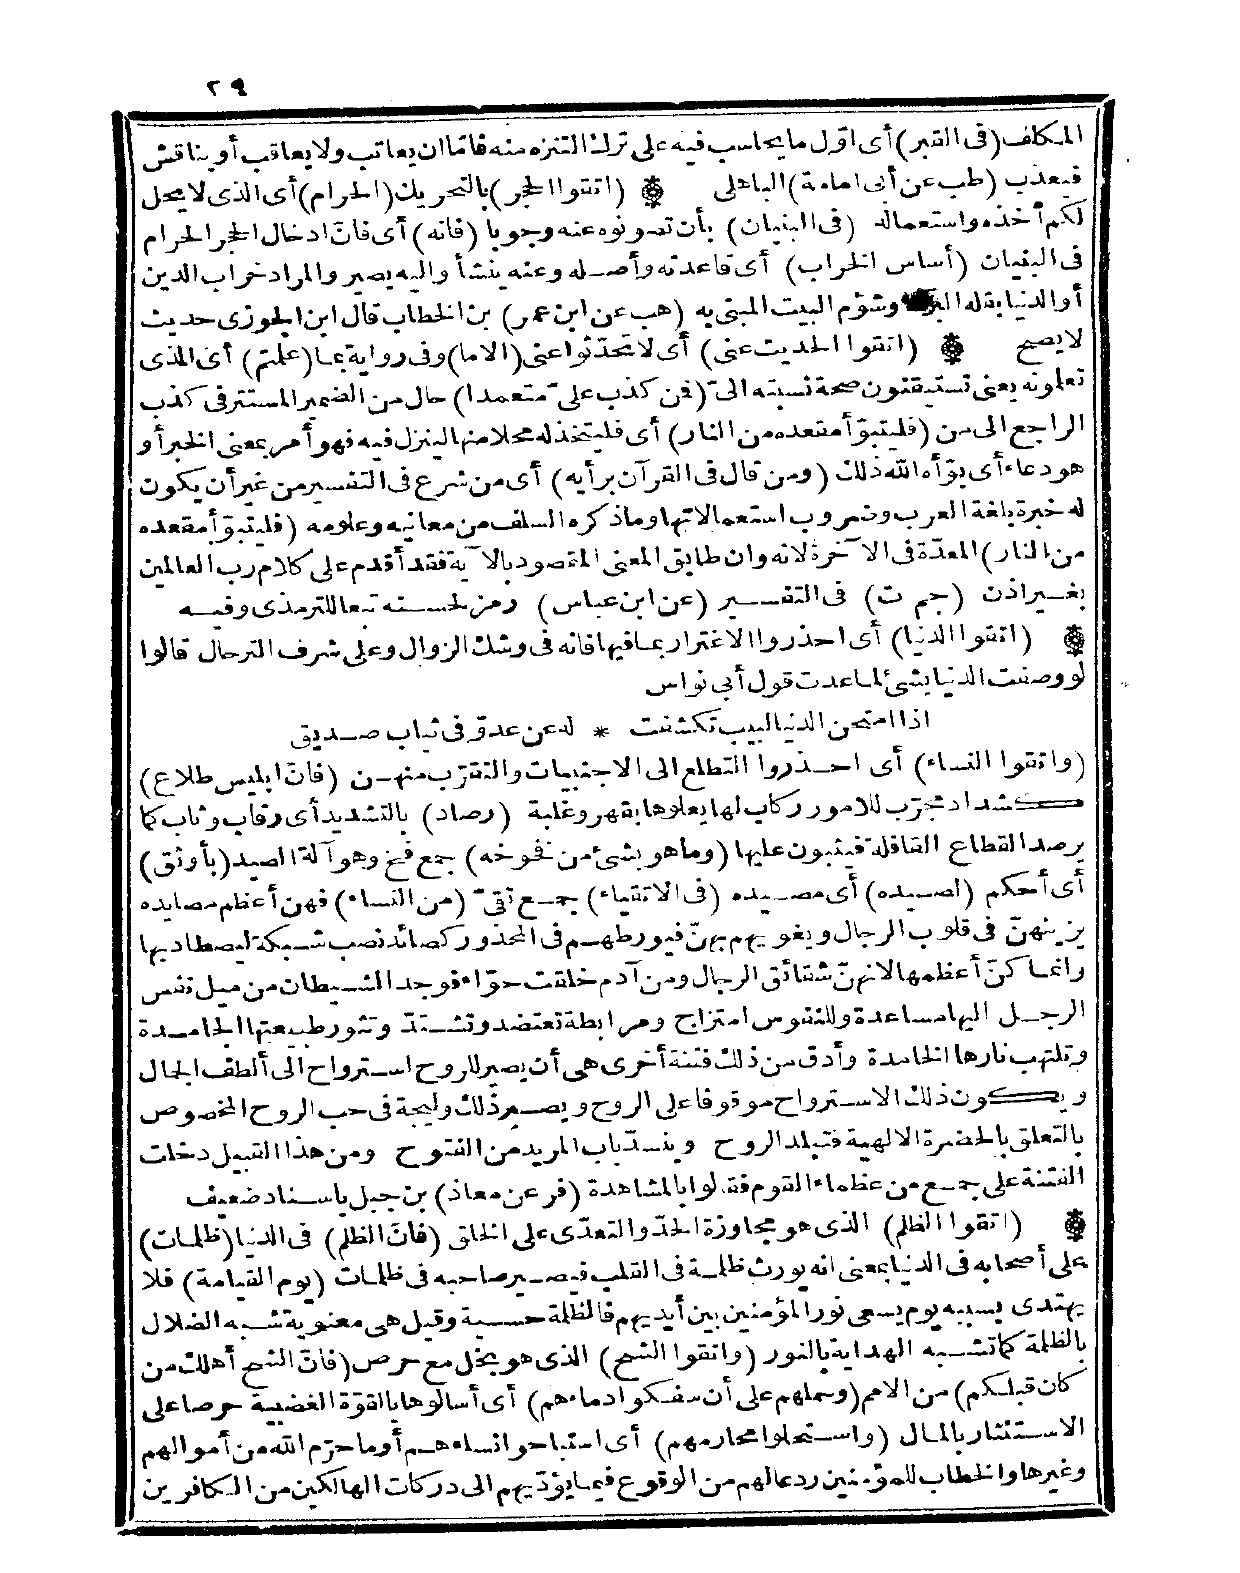 ٢٩
المكلف (فى القبر) أى اوّل ما يحاسب فيه على ترك التنزه منه فامّا ان يعاتب ولا يعاقب أو يناقش
فيعذب (طب عن أبى امامة) الباهلى (اتقوا الحجر) بالتحريك (الحرام) أى الذى لا يحل
لكم أخذه واستعماله (فى البنيان) بأن تصونوه عنه وجوبا (فانه) أى فان ادخال الحجر الحرام
فى البنيان (أساس الخراب) أى قاعدته وأصله وعنه ينشأ واليه يصير والمراد خراب الدين
أو الدنيا بقلة وشؤم البيت المبنى به (هب عن ابن عمر) بن الخطاب قال ابن الجوزى حديث
لا يصح (اتقوا الحديث عنى) أى لا تحدّثوا عنى (الاما) وفى رواية بما (علمتم) أى الذى
تعلمونه يعنى تستيقنون صحة نسبته الىّ (فمن كذب علىّ متعمدا) حال من الضمير المستتر فى كذب
الراجع الى من (فليتبوّأ مقعده من النار) أى فليتخذ له محلا منها لينزل فيه فهو أمر بمعنى الخبر أو
هو دعاء أى بوّأه الله ذلك (ومن قال فى القرآن برأيه) أى من شرع فى التفسير من غير أن يكون
له خبرة بلغة العرب وضروب استعمالاتها وما ذكره السلف من معانيه وعلومه (فليتبوّأ مقعده
من النار) المعدّة فى الآخرة لانه وان طابق المعنى المقصود بالآية فقد أقدم على كلام رب العالمين
بغير اذن (حم ت) فى التفسير (عن ابن عباس) رمز لحسنه تبعا للترمذى وفيه
(اتقوا الدنيا) أى احذروا الاغترار بما فيها فانه فى وشك الزوال وعلى شرف الترحال قالوا
لو وصفت الدنيا بشئ لما عدت قول أبى نواس
اذا امتحن الدنيا لبيب تكشفت * له عن عدوّ فى ثياب صديق
(واتقوا النساء) أى احذروا التطلع الى الاجنبيات والتقرّب منهن (فانّ ابليس طلاع)
كشداد مجرّب للامور ركاب لها يعلوها بقهر وغلبة (رصاد) بالتشديد أى رقاب وثاب كما
يرصد القطاع القافلة فيثبون عليها (وما هو بشئ من فخوخه) جمع فخ وهو آلة الصيد (بأوثق)
أى أحكم (لصيده) أى مصيده (فى الاتقياء) جمع تقىّ (من النساء) فهن أعظم مصايده
يزينهنّ فى قلوب الرجال ويغويهم بهنّ فيورطهم فى المحذور كصائد نصب شبكة ليصطاد بها
وانما كنّ أعظمها لانهنّ شقائق الرجال ومن آدم خلقت حوّاء فوجد الشيطان من ميل نفس
الرجل اليها مساعدة وللنفوس امتزاج ومرابطة تعتضد وتشتدّ وتثور طبيعتها الجامدة
وتلتهب نارها الخامدة وأدق من ذلك فتنة أخرى هى أن يصير للروح استرواح الى ألطف الجمال
ويكون ذلك الاسترواح موقوفا على الروح ويصير ذلك وليجة فى حب الروح المخصوص
بالتعلق بالحضرة الالهية فتبلد الروح وينسدّ باب المريد من الفتوح ومن هذا القبيل دخلت
الفتنة على جمع من عظماء القوم فقالوا بالمشاهدة (فر عن معاذ) بن جبل باسناد ضعيف
(اتقوا الظلم) الذى هو مجاوزة الحدّ والتعدّى على الخلق (فانّ الظلم) فى الدنيا (ظلمات)
على أصحابه فى الدنيا بمعنى انه يورث ظلمة فى القلب فيصير صاحبه فى ظلمات (يوم القيامة) فلا
يهتدى بسببه يوم يسعى نور المؤمنين بين أيديهم فالظلمة حسية وقيل هى معنوية شبه الضلال
بالظلمة كما تشبه الهداية بالنور (واتقوا الشح) الذى هو بخل مع حرص (فانّ الشح أهلك من
كان قبلكم) من الامم (وحملهم على أن سفكوا دماءهم) أى أسالوها بالقوّة الغضبية حرصا على
الاستئثار بالمال (واستحلوا محارمهم) أى استباحوا نساءهم أو ما حرّم الله من أموالهم
وغيرها والخطاب للمؤمنين ردعا لهم من الوقوع فيما يؤدّيهم الى دركات الهالكين من الكافرين